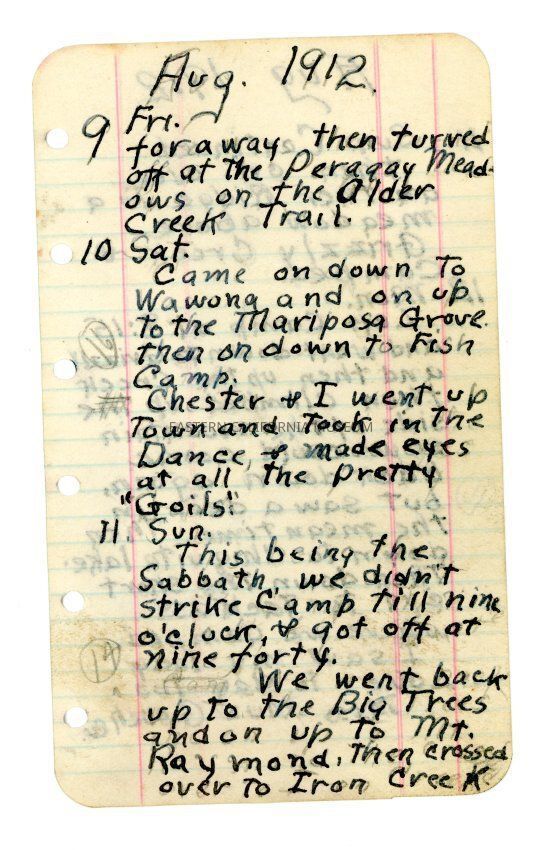 Aug. 1912.
9 Fri.
for a way then turned
off at the Peragay Mead-
ows on the Alder
Creek Trail.
10 Sat.
Came on down To
Wawona and on up
to the Mariposa Grove.
then on down to Fish
Camp.
Chester & I went up
Town and Took in the
EASTERN CALIFORNIA MUSEUM
Dance, & made eyes
at all the pretty
"Goils!"
11. Sun.
This being the
Sabbath, we didn't
strike Camp till nine
o'clock, & got off at
nine forty.
We went back
up to the Big Trees
and on up to Mt.
Raymond, Then crossed
over to Iron Creek